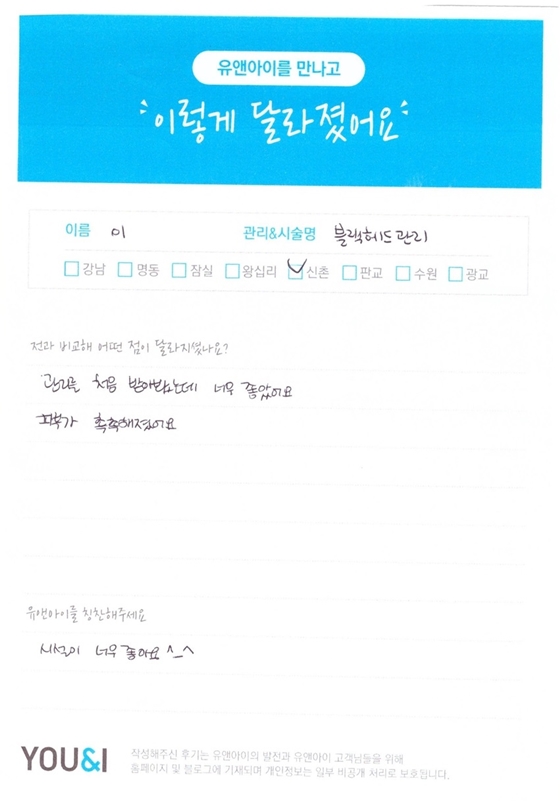 유앤아이를 만나고
이렇게 달라졌어요
이름 이 관리&시술명 블랙헤드관리
강남 명동 잠실 왕십리 신촌 판교 수원 광교
전과 비교해 어떤 점이 달라지셨나요?
관리를 처음 받아봤는데 너무 좋았어요
피부가 촉촉해졌어요
유앤아이를 칭찬해주세요
시설이 너무 좋아요 ^_^
YOU&I
작성해주신 후기는 유앤아이의 발전과 유앤아이 고객님들을 위해
홈페이지 및 블로그에 기재되며 개인정보는 일부 비공개 처리로 보호됩니다.